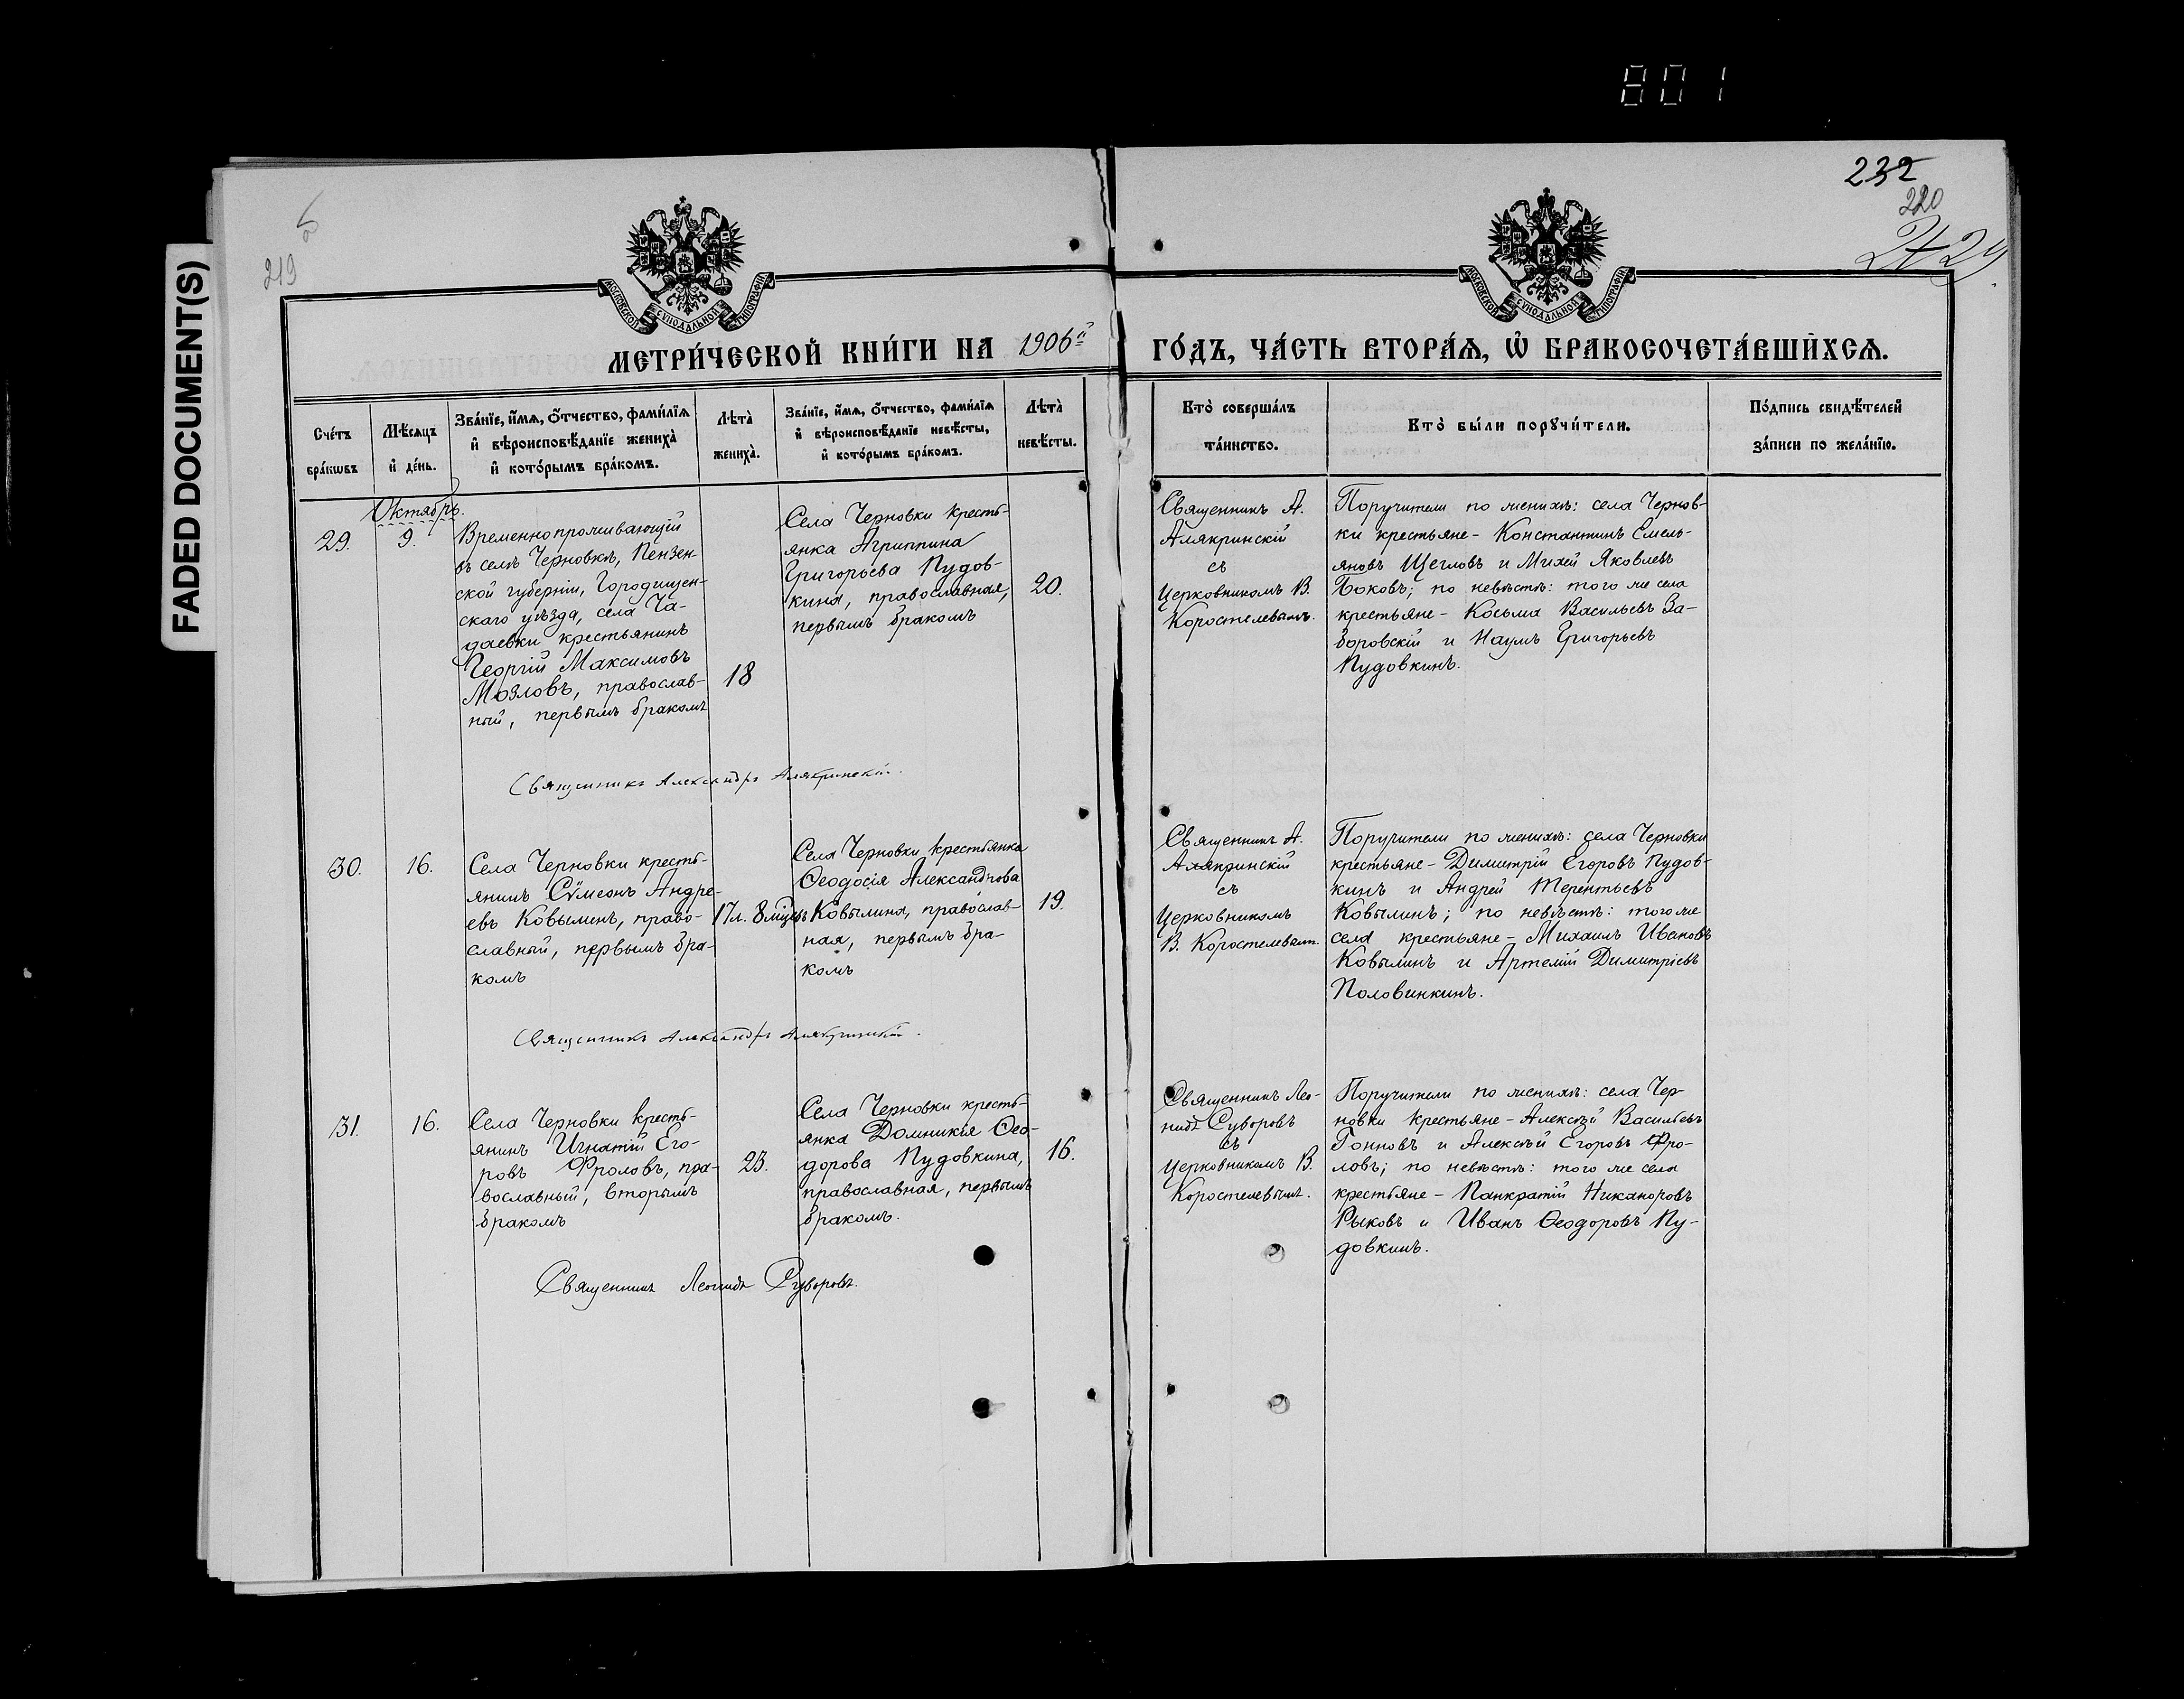 801
FADED DOCUMENT(S)
232
220
219
МОСКОВСКОЙ СѴНОДАЛЬНОЙ ТИПОГРАФІИ
МОСКОВСКОЙ СѴНОДАЛЬНОЙ ТИПОГРАФІИ
МЕТРИ́ЧЕСКОЙ КНИ́ГИ НА 1906й ГО́ДЪ, ЧА́СТЬ ВТОРА́Ѧ, Ѡ҆ БРАКОСОЧЕТА́ВШИХСѦ.
Сче́тъ
бра́кѡвъ
Мѣ́сѧцъ
и҆ де́нь.
Зва́нїе, и҆́мѧ, ѻ҆́тчество, фами́лїѧ
и҆ вѣроисповѣ́данїе жениха̀
и҆ кото́рымъ бра́комъ.
Лѣта̀
жениха̀.
Зва́нїе, и҆́мѧ, ѻ҆́тчество, фами́лїѧ
и҆ вѣроисповѣ́данїе невѣ́сты,
и҆ кото́рымъ бра́комъ.
Лѣта̀
невѣ́сты.
Кто̀ соверша́лъ
та́инство.
Кто̀ бы́ли порꙋчи́тели.
По́дпись свидѣ́телей
за́писи по жела́нїю.
Октябрь.
29.
9.
Временно проживающій
въ селѣ Черновкѣ, Пензен-
ской губерніи, Городищен-
скаго уѣзда, села Ча-
даевки крестьянинъ
Георгій Максимовъ
Мозловъ, православ-
ный, первымъ бракомъ
18
Села Черновки кресть-
янка Агриппина
Григорьева Пудов-
кина, православная,
первымъ бракомъ
20.
Священникъ А.
Алякринскій
съ
церковникомъ В.
Коростелевымъ.
Поручители по женихѣ: села Чернов-
ки крестьяне - Константинъ Емель-
яновъ Щегловъ и Михей Яковлевъ
Боковъ; по невѣстѣ: того же села
крестьяне - Косьма Васильевъ За-
боровскій и Наумъ Григорьевъ
Пудовкинъ.
Священникъ Александръ Алякринскій.
30.
16.
Села Черновки кресть-
янинъ Сѵмеонъ Андре-
евъ Ковылинъ, право-
славный, первымъ бра-
комъ
17л. 8 мцевъ
Села Черновки крестьянка
Ѳеодосія Александрова
Ковылина, православ-
ная, первымъ бра-
комъ
19.
Священникъ А.
Алякринскій
съ
церковникомъ
В. Коростелевымъ.
Поручители по женихѣ: села Черновки
крестьяне - Димитрій Егоровъ Пудов-
кинъ и Андрей Терентьевъ
Ковылинъ; по невѣстѣ: того же
села крестьяне - Михаилъ Ивановъ
Ковылинъ и Артемій Димитріевъ
Половинкинъ.
Священникъ Александръ Алякринскій.
31.
16.
Села Черновки кресть-
янинъ Игнатій Его-
ровъ Фроловъ, пра-
вославный, вторымъ
бракомъ
23.
Села Черновки кресть-
янка Домникія Ѳео-
дорова Пудовкина,
православная, первымъ
бракомъ.
16.
Священникъ Лео-
нидъ Суворовъ
съ
церковникомъ В.
Коростелевымъ.
Поручители по женихѣ: села Чер-
новки крестьяне - Алексѣй Васильевъ
Гонновъ и Алексѣй Егоровъ Фро-
ловъ; по невѣстѣ: того же села
крестьяне - Панкратій Никаноровъ
Рыковъ и Иванъ Ѳеодоровъ Пу-
довкинъ.
Священникъ Леонидъ Суворовъ.